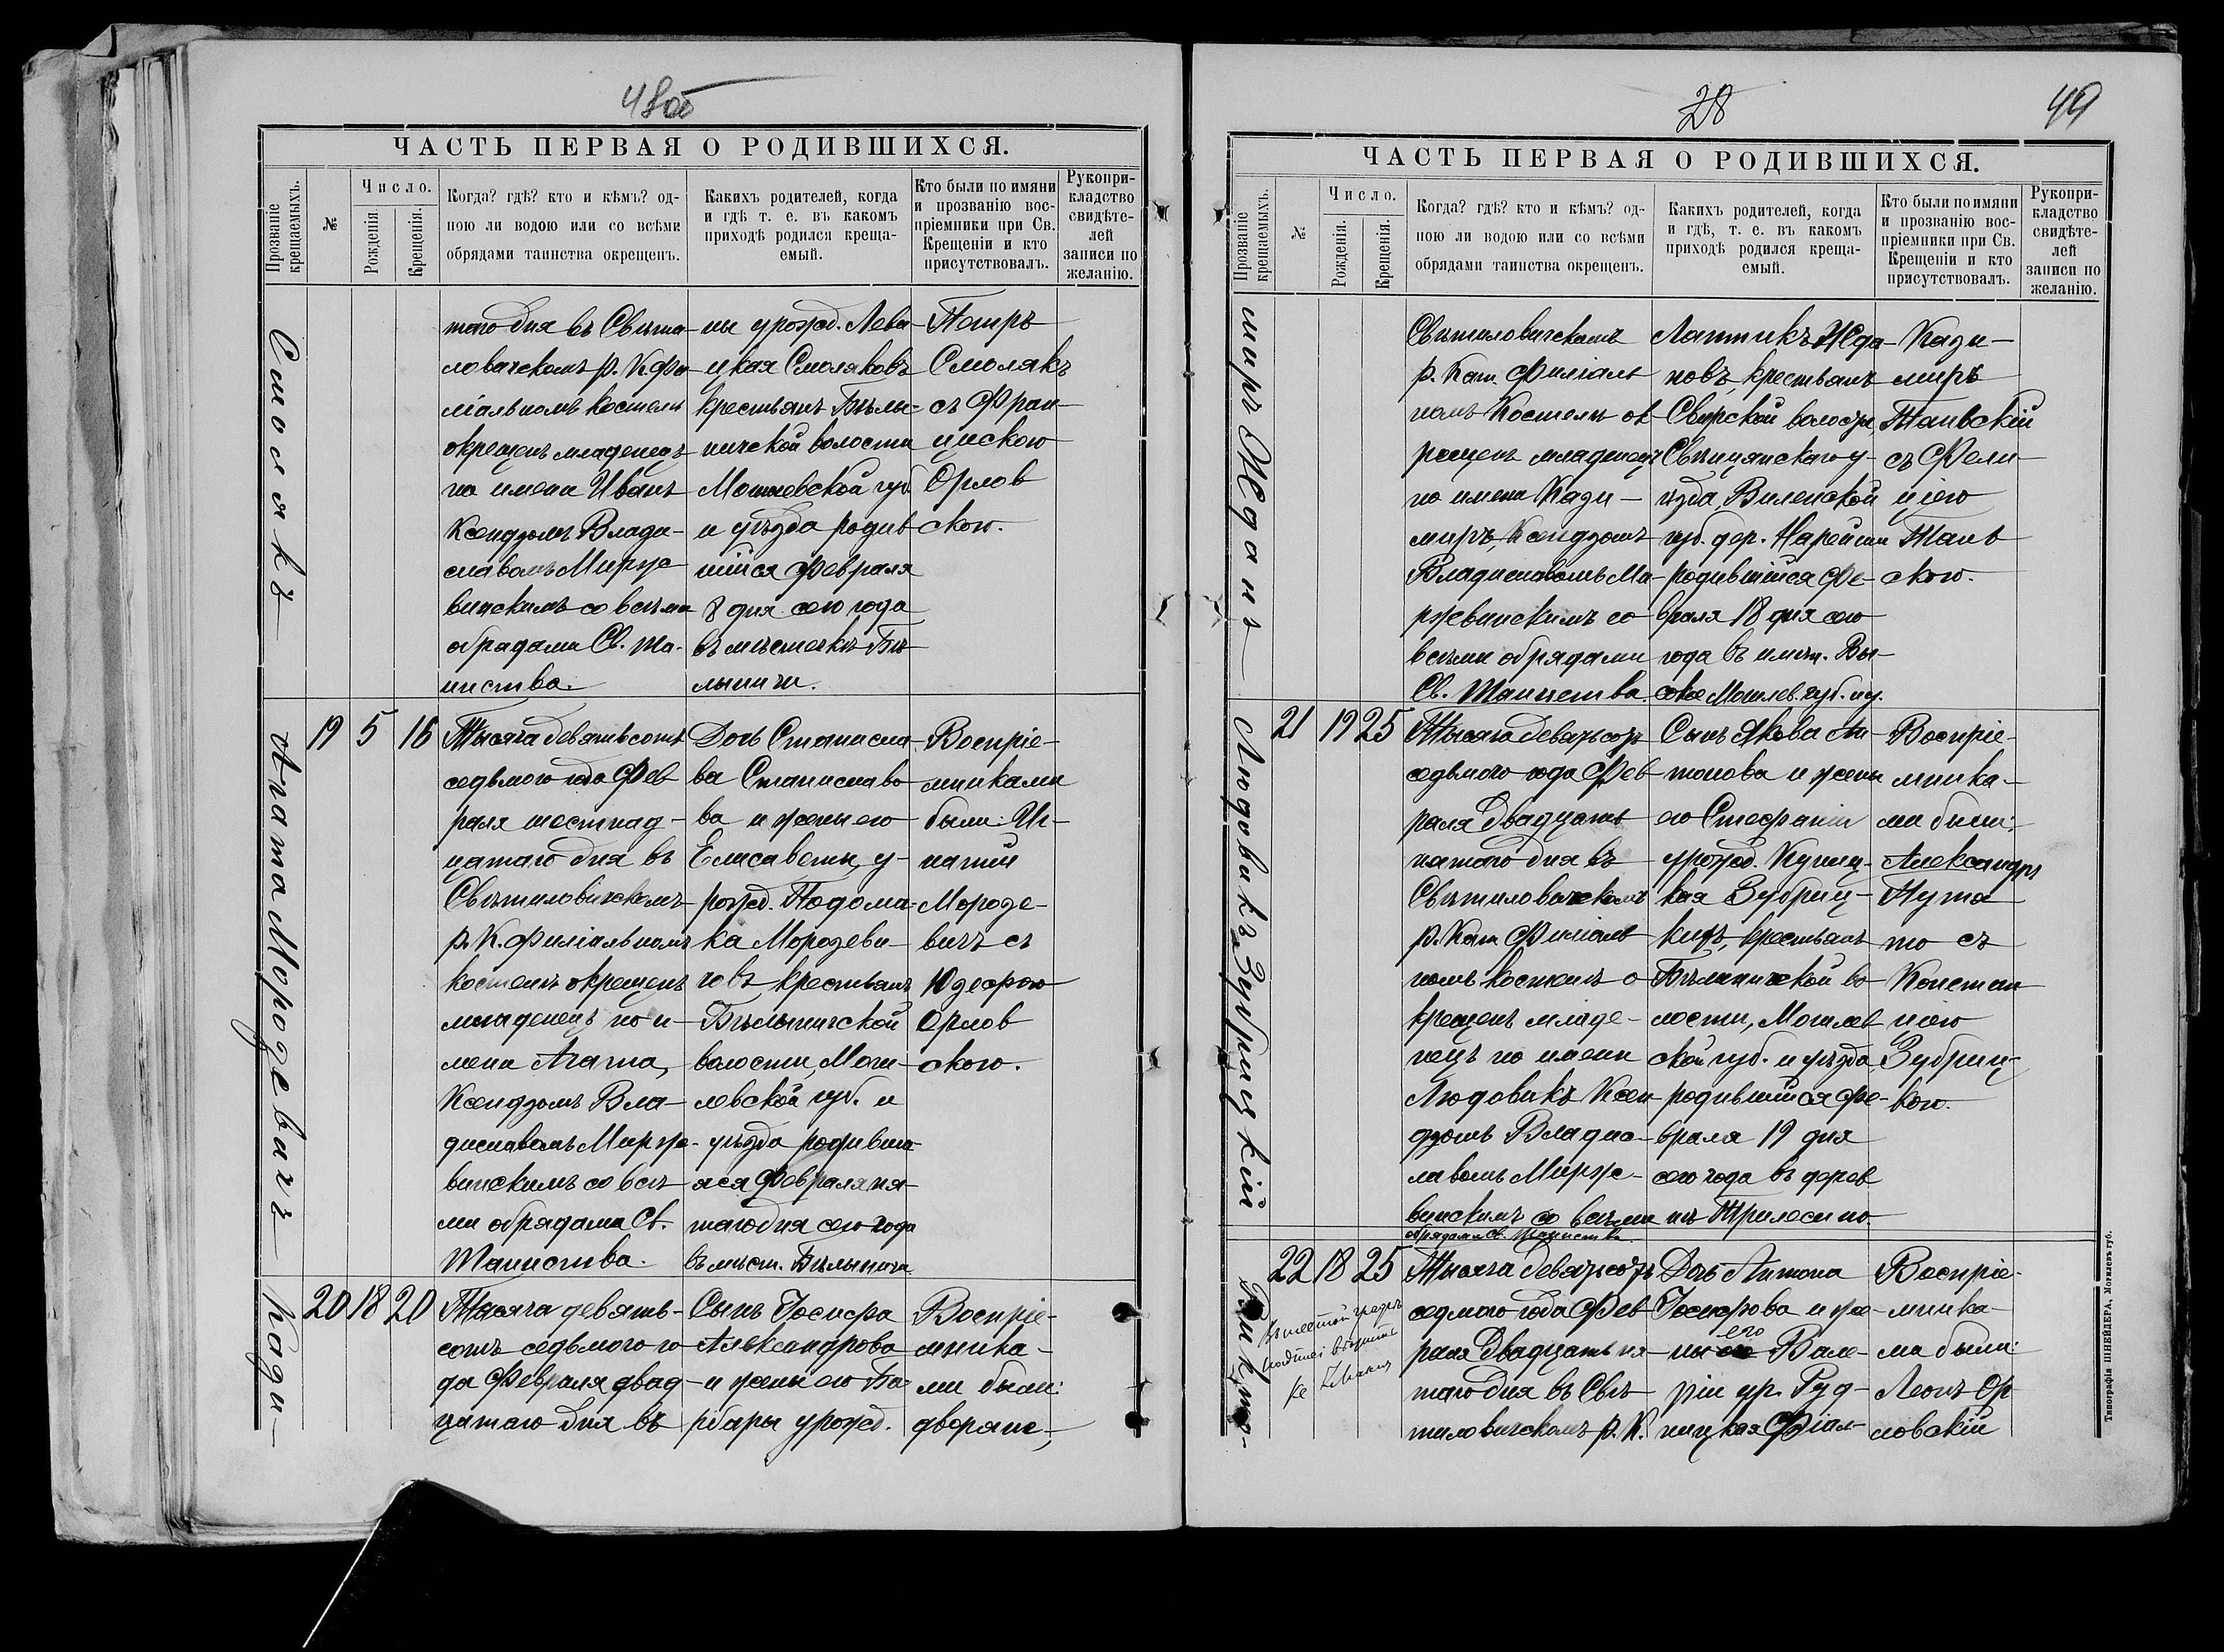 48об
ЧАСТЬ ПЕРВАЯ О РОДИВШИХСЯ.
Прозваніе крещаемыхъ.
№
Число.
Рожденія.
Крещенія.
Когда? гдѣ? кто и кѣмъ? од-
ною ли водою или со всѣми
обрядами таинства окрещенъ.
Какихъ родителей, когда
и гдѣ т. е. въ какомъ
приходѣ родился креща-
емый.
Кто были по имяни
и прозванію вос-
пріемники при Св.
Крещеніи и кто
присутствовалъ.
Рукопри-
кладство
свидѣте-
лей
записи по
желанію.
Смолякъ
таго дня въ Свѣти-
ловичскомъ р. К. Фи-
ліальномъ костелѣ
окрещенъ младенецъ
по имени Иванъ
Ксендзомъ Влади-
славомъ Мирже-
винскимъ со всѣми
обрядами Св. Та-
инства.
ны урожд. Лева-
цкая Смоляковъ
крестьянъ Бѣлы-
ничской волости
Могилевской губ.
и уѣзда родив-
шійся Февраля
8 дня сего года
въ мѣстечкѣ Бѣ-
лыничи.
Петръ
Смолякъ
съ Фран-
цискою
Орлов
скою.
Агата Мороgевичъ
19 5 16
Тысяча девятьсотъ
седьмого года Фев
раля шестнад-
цатаго дня въ
Свѣтиловичскомъ
р. К. Филіальномъ
костелѣ окрещенъ
младенецъ по и-
мени Агата,
Ксендзомъ Вла-
диславомъ Мирже-
винскимъ со всѣ
ми обрядами Св.
Таинства.
Дочь Станисла-
ва Станиславо
ва и жены его
Елисаветы, у-
рожд. Подома-
ка Морозеви-
човъ, крестьянъ
Бѣлыничской
волости, Моги-
левской губ. и
уѣзда родивша-
яся Февраля пя-
таго дня сего года
въ мѣст. Бѣлыничи
Воспріе-
мниками
были: Иг-
натій
Морозе-
вичъ съ
Юзефою
Орлов
скою.
Кази-
20 18 20
Тысяча девять-
сотъ седьмого го
да Февраля двад-
цатаго дня въ
Сынъ Іосифа
Александрова
и жены его Ва-
рвары урожд.
Воспріе-
мника-
ми были:
дворяне,
28
49
ЧАСТЬ ПЕРВАЯ О РОДИВШИХСЯ.
Прозваніе крещаемыхъ.
№
Число.
Рожденія.
Крещенія.
Когда? гдѣ? кто и кѣмъ? од-
ною ли водою или со всѣми
обрядами таинства окрещенъ.
Какихъ родителей, когда
и гдѣ, т. е. въ какомъ
приходѣ родился креща-
емый.
Кто были по имяни
и прозванію вос-
пріемники при Св.
Крещеніи и кто
присутствовалъ.
Рукопри-
кладство
свидѣте-
лей
записи по
желанію.
миръ Жданъ
Свѣтиловичскомъ
р. Кат. Филіаль
номъ Костелѣ ок-
рещенъ младенецъ
по имени Кази-
миръ, Ксендзомъ
Владиславомъ Ми-
ржевинскимъ со
всѣми обрядами
Св. Таинства.
Лаптикъ Жда-
новъ, крестьянъ
Свирской волости,
Свѣнцянскаго у-
ѣзда, Виленской
губ. дер.
родившійся Фе-
враля 18 дня сего
года въ имѣн. Вы-
сокое Могилев. губ. и у.
Кази-
миръ
съ Фели-
ціею
скою.
Людовикъ Зубрицкій
21 19 25
Тысяча девятьсотъ
седьмого года Фев
раля двадцать
пятаго дня въ
Свѣтиловичскомъ
р. Кат Филіаль
номъ костелѣ о-
крещенъ младе-
нецъ по имени
Людовикъ Ксен
дзомъ Владис-
лавомъ Мирже-
винскимъ со всѣми
обрядами Св. Таинства.
Сынъ Якова Ан-
тонова и жены
его Стефаніи
урожд. Куниц-
кая Зубриц-
кихъ, крестьянъ
Бѣлыничской во
лости, Могилев
ской губ. и уѣзда
родившійся Фе-
враля 19 дня
сего года въ дерев
нѣ Трилесино.
Воспріе-
мника-
ми были:
Александръ
Пута
то съ
Констан
ціею
Зубриц-
кою.
22 18 25
Тысяча девятьсотъ
седмого года Фев
раля двадцать пя
таго дня въ Свѣ-
тиловичскомъ р. К.
Дочь Антона
Іосифова и же-
ны его Вале-
ріи ур. Руд-
ницкая Фіал-
Воспріе-
мника-
ми были:
Леонъ Ор
ловскій
Типографія ШНЕЙДЕРА, Могилевъ губ.